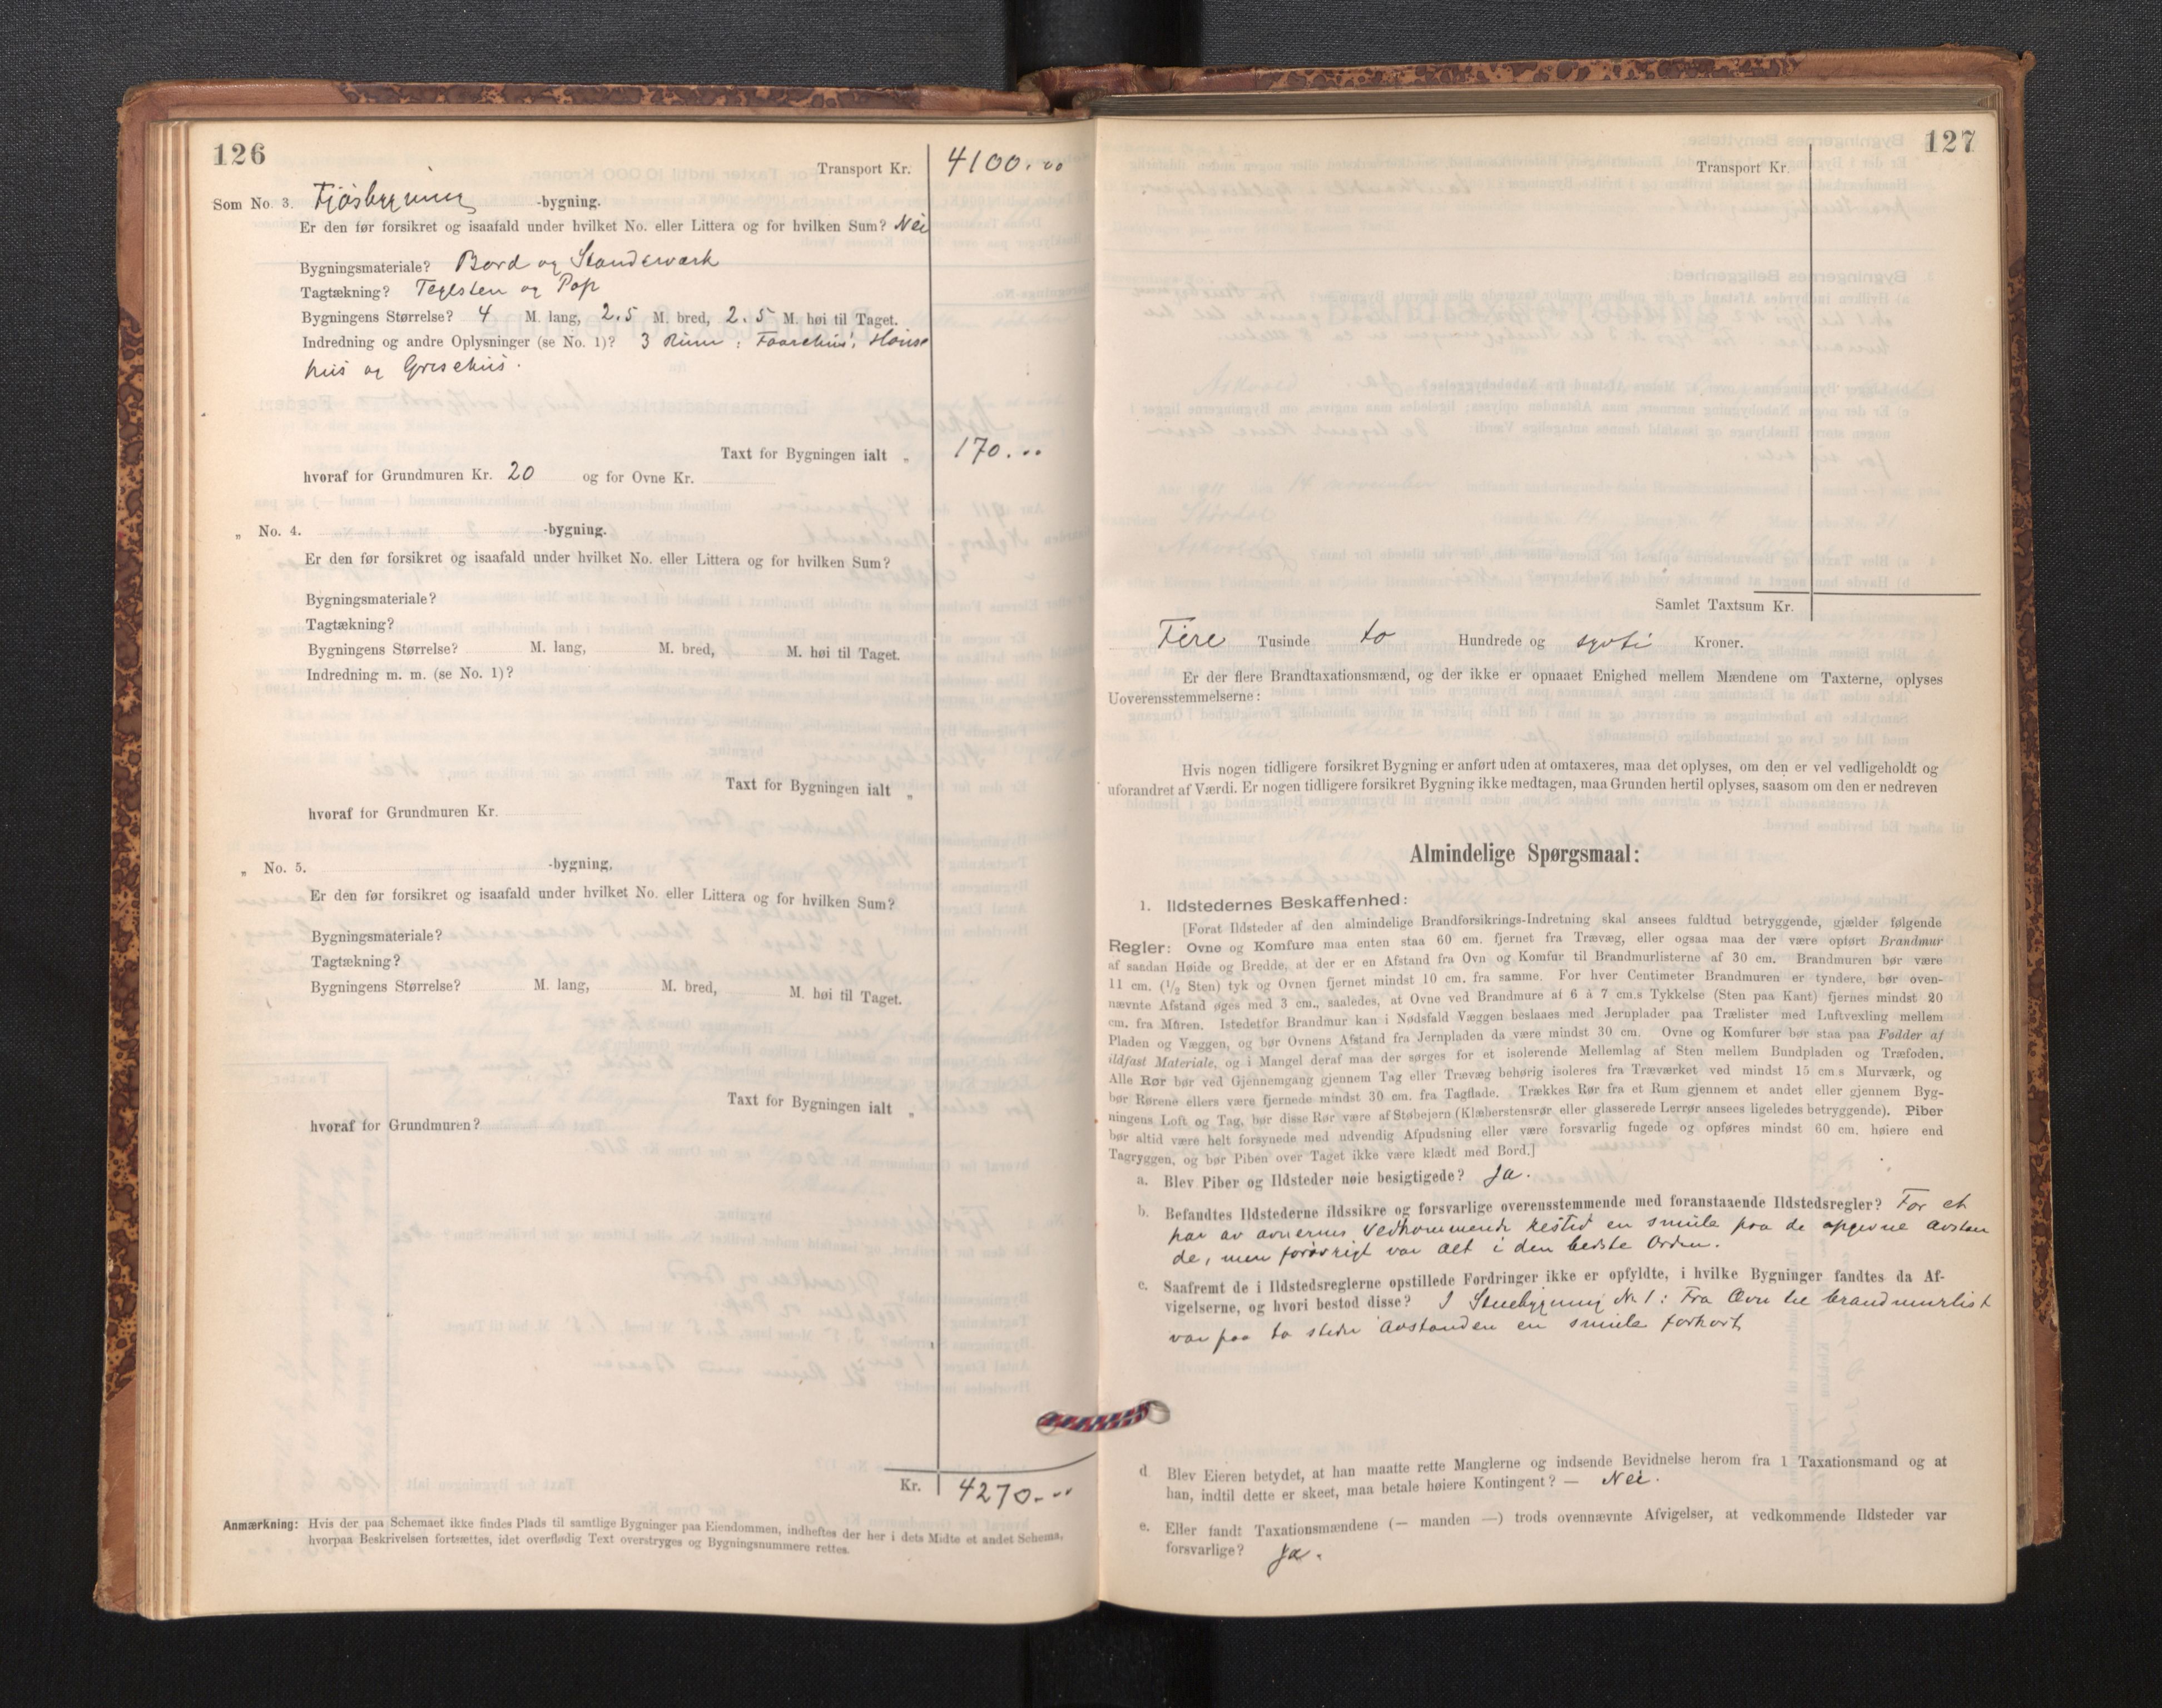 126
Transport Kr. 4100.00
Som No. 3. Fjøsbygning -bygning.
Er den før forsikret og isaafald under hvilket No. eller Littera og for hvilken Sum? Nei
Bygningsmateriale? Bord og Standerværk
Tagtækning? Teglsten og Pap
Bygningens Størrelse? 4 M. lang, 2.5 M. bred, 2.5 M. høi til Taget.
Indredning og andre Oplysninger (se No. 1)? 3 Rum: Faarehus, Hønse
hus og Grisehus.
Taxt for Bygningen ialt „ 170...
hvoraf for Grundmuren Kr. 20 og for Ovne Kr.
„ No. 4. -bygning.
Er den før forsikret og isaafald under hvilket No. eller Littera og for hvilken Sum?
Bygningsmateriale?
Tagtækning?
Bygningens Størrelse? M. lang, M. bred, M. høi til Taget.
Indredning m. m. (se No. 1)?
Taxt for Bygningen ialt „
hvoraf for Grundmuren Kr.
„ No. 5. -bygning.
Er den før forsikret og isaafald under hvilket No. eller Littera og for hvilken Sum?
Bygningsmateriale?
Tagtækning?
Bygningens Størrelse? M. lang, M. bred, M. høi til Taget.
Taxt for Bygningen ialt „
hvoraf for Grundmuren?
Kr. 4270...
Anmærkning: Hvis der paa Schemaet ikke findes Plads til samtlige Bygninger paa Eiendommen, indheftes der her i dets Midte et andet Schema,
hvorpaa Beskrivelsen fortsættes, idet overflødig Text overstryges og Bygningsnummere rettes.
127
Transport Kr.
Samlet Taxtsum Kr.
Fire Tusinde to Hundrede og sytti Kroner.
Er der flere Brandtaxationsmænd, og der ikke er opnaaet Enighed mellem Mændene om Taxterne, oplyses
Uoverensstemmelserne:
Hvis nogen tidligere forsikret Bygning er anført uden at omtaxeres, maa det oplyses, om den er vel vedligeholdt og
uforandret af Værdi. Er nogen tidligere forsikret Bygning ikke medtagen, maa Grunden hertil oplyses, saasom om den er nedreven
Almindelige Spørgsmaal:
1. Ildstedernes Beskaffenhed:
[Forat Ildsteder af den almindelige Brandforsikrings-Indretning skal ansees fuldtud betryggende, gjælder følgende
Regler: Ovne og Komfure maa enten staa 60 cm. fjernet fra Trævæg, eller ogsaa maa der være opført Brandmur
af saadan Høide og Bredde, at der er en Afstand fra Ovn og Komfur til Brandmurlisterne af 30 cm. Brandmuren bør være
11 cm. (1/2 Sten) tyk og Ovnen fjernet mindst 10 cm. fra samme. For hver Centimeter Brandmuren er tyndere, bør oven-
nævnte Afstand øges med 3 cm., saaledes, at Ovne ved Brandmure af 6 à 7 cm.s Tykkelse (Sten paa Kant) fjernes mindst 20
cm. fra Muren. Istedetfor Brandmur kan i Nødsfald Væggen beslaaes med Jernplader paa Trælister med Luftvexling mellem
Pladen og Væggen, og bør Ovnens Afstand fra Jernpladen da være mindst 30 cm. Ovne og Komfurer bør staa paa Fødder af
ildfast Materiale, og i Mangel deraf maa der sørges for et isolerende Mellemlag af Sten mellem Bundpladen og Træfoden.
Alle Rør bør ved Gjennemgang gjennem Tag eller Trævæg behørig isoleres fra Træværket ved mindst 15 cm s Murværk, og
bør Rørene ellers være fjernede mindst 30 cm. fra Tagflade. Trækkes Rør fra et Rum gjennem et andet eller gjennem Byg-
ningens Loft og Tag, bør disse Rør være af Støbejern (Klæberstensrør eller glasserede Lerrør ansees ligeledes betryggende). Piber
bør altid være helt forsynede med udvendig Afpudsning eller være forsvarlig fugede og opføres mindst 60 cm. høiere end
Tagryggen, og bør Piben over Taget ikke være klædt med Bord.]
a. Blev Piber og Ildsteder nøie besigtigede? Ja.
b. Befandtes Ildstederne ildssikre og forsvarlige overensstemmende med foranstaaende Ildstedsregler? For et
par av ovnernes vedkommende restet en smule paa de opgivne avstan
de, men forøvrigt var alt i den bedste Orden.
c. Saafremt de i Ildstedsreglerne opstillede Fordringer ikke er opfyldte, i hvilke Bygninger fandtes da Af-
vigelserne, og hvori bestod disse? I Stuebygning No 1: Fra Ovn til brandmurlist
var paa to steder avstanden en smule forkort
d Blev Eieren betydet, at han maatte rette Manglerne og indsende Bevidnelse herom fra 1 Taxationsmand og at
han, indtil dette er skeet, maa betale høiere Kontingent? — Nei.
e. Eller fandt Taxationsmændene (— manden —) trods ovennævnte Afvigelser, at vedkommende Ildsteder var
forsvarlige? Ja.